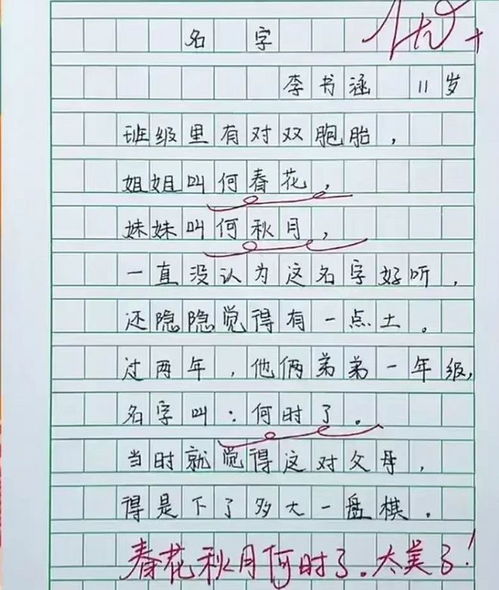 名字
优+
李书涵 11岁
班级里有对双胞胎，
姐姐叫何春花，
妹妹叫何秋月，
一直没认为这名字好听，
还隐隐觉得有一点土。
过两年，他俩弟弟一年级，
名字叫：何时了。
当时就觉得这对父母，
得是下了多大一盘棋．
春花秋月何时了．太美了！